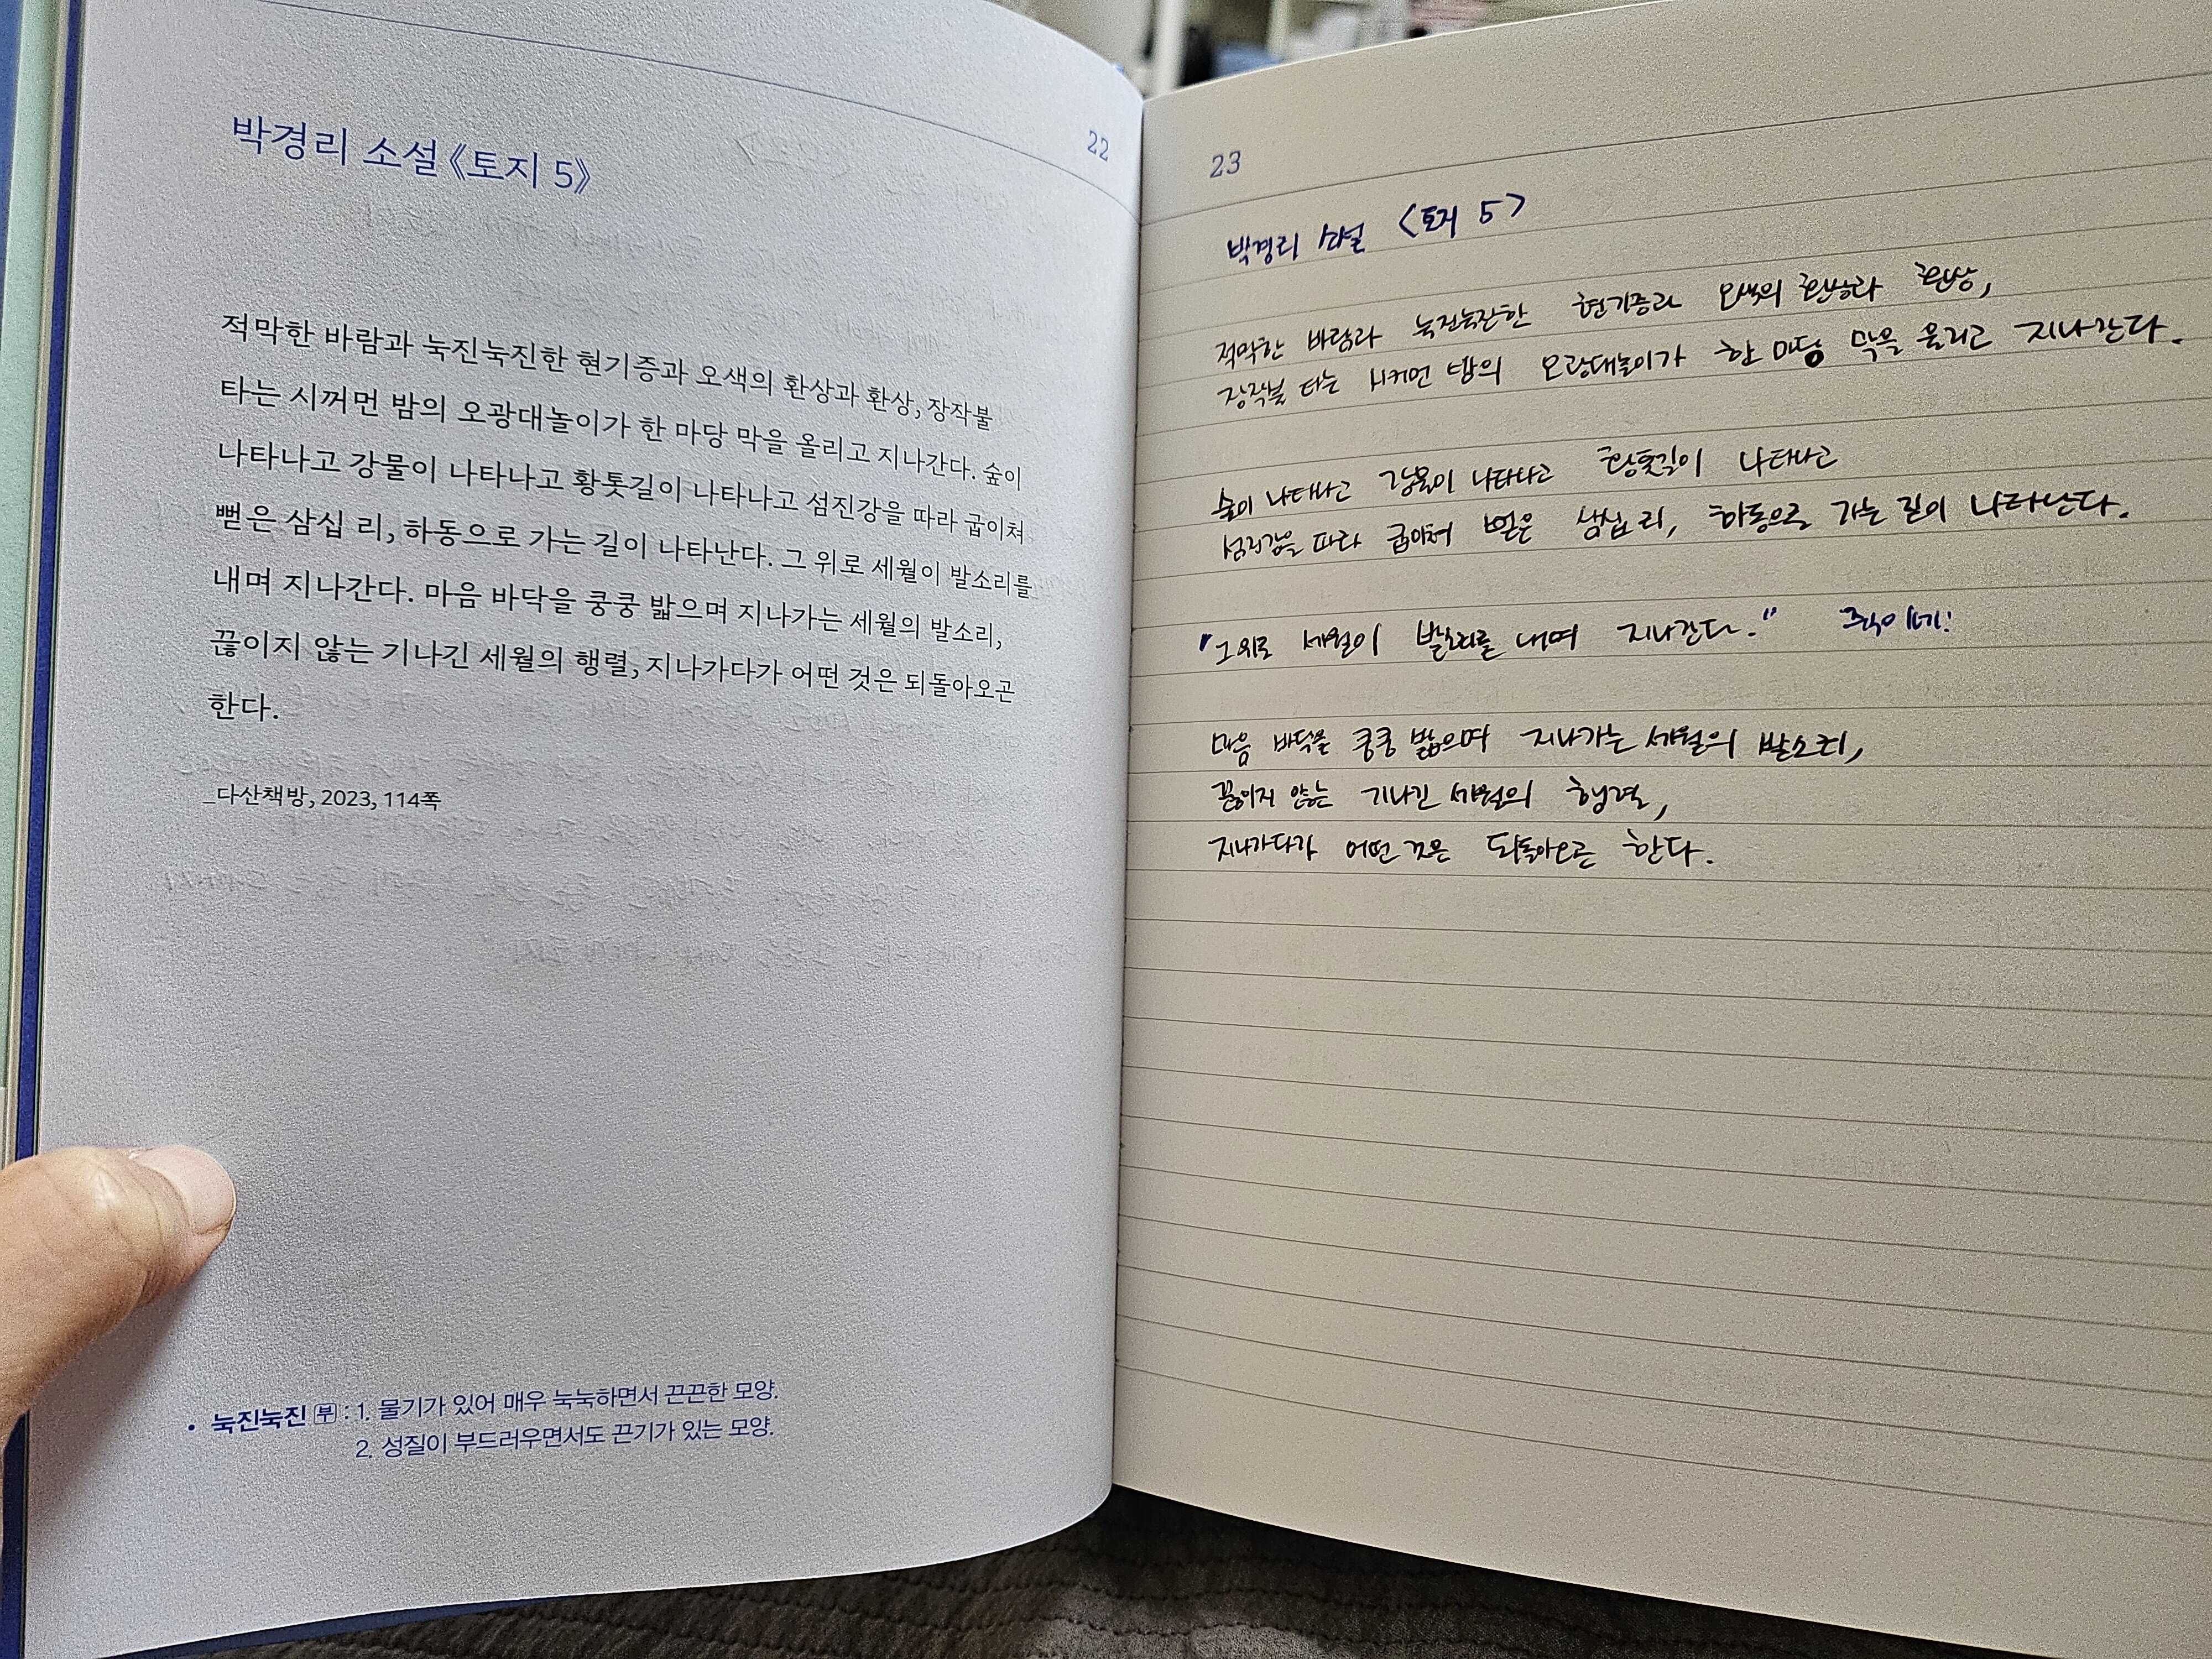 22
박경리 소설 《토지 5》
적막한 바람과 눅진눅진한 현기증과 오색의 환상과 환상, 장작불
타는 시꺼먼 밤의 오광대놀이가 한 마당 막을 올리고 지나간다. 숲이
나타나고 강물이 나타나고 황톳길이 나타나고 섬진강을 따라 굽이쳐
뻗은 삼십 리, 하동으로 가는 길이 나타난다. 그 위로 세월이 발소리를
내며 지나간다. 마음 바닥을 쿵쿵 밟으며 지나가는 세월의 발소리,
끊이지 않는 기나긴 세월의 행렬, 지나가다가 어떤 것은 되돌아오곤
한다.
_다산책방, 2023, 114쪽
• 눅진눅진 부 : 1. 물기가 있어 매우 눅눅하면서 끈끈한 모양.
2. 성질이 부드러우면서도 끈기가 있는 모양.
23
박경리 소설 <토지 5>
적막한 바람과 눅진눅진한 현기증과 오색의 환상과 환상,
장작불 타는 시커먼 밤의 오광대놀이가 한 마당 막을 올리고 지나간다.
숲이 나타나고 강물이 나타나고 황톳길이 나타나고
섬진강을 따라 굽이쳐 뻗은 삼십 리, 하동으로 가는 길이 나타난다.
"그 위로 세월이 발소리를 내며 지나간다." 죽이네!
마음 바닥을 쿵쿵 밟으며 지나가는 세월의 발소리,
끊이지 않는 기나긴 세월의 행렬,
지나가다가 어떤 것은 되돌아오곤 한다.